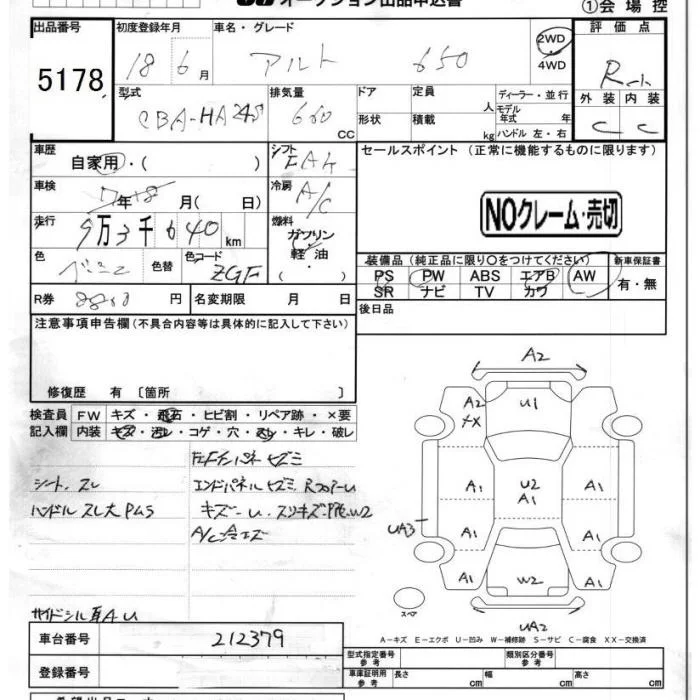 オークション出品申込書
①会 場 控
出品番号 初度登録年月 車名・グレード 評価点
5178 18 6月 アルト 650 2WD 4WD R
外装 内装
C C
型式 排気量 ドア 定員 人 ディーラー・並行
CBA-HA24S 660 CC 形状 積載 kg モデル年式 年
ハンドル 左・右
車歴 シフト セールスポイント (正常に機能するものに限ります)
自家用・( )
車検 年 18月( 日) 冷房 A/C
NOクレーム・売切
走行 9万3千640km 燃料 ガソリン 軽油・ ( )
色 色替 色コード ZGF
装備品(純正品に限り○をつけてください) 新車保証書
PS PW ABS エアB AW 有・無
SR ナビ TV カワ
R券 円 名変期限 月 日
後日品
注意事項申告欄(不具合内容等は具体的に記入して下さい)
修復歴 有〔箇所 〕
検査員 FW キズ・飛石・ヒビ割・リペア跡・×要
記入欄 内装 キズ・汚レ・コゲ・穴・スレ・キレ・破レ
シート、スレ
エンドパネルヒズミ
ハンドルスレ大
サイドシル
A2
A2 U1
U2
A1
A1 A1
UA3 A1 A1
A1 W2 A1
スペア UA2
A-キズ E-エクボ U-凹み W-補修跡 S-サビ C-腐食 XX-交換済
車台番号 212379
登録番号
型式指定番号 参考 類別区分番号 参考
車庫証明用 参考 長さ cm 幅 cm 高さ cm